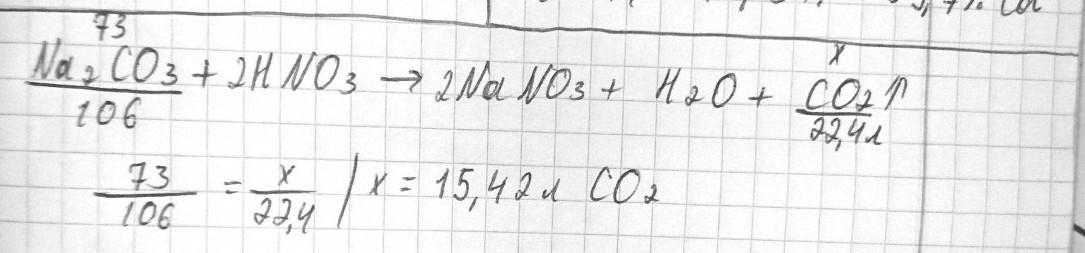 73
x
Na2CO3 + 2HNO3 → 2NaNO3 + H2O + CO2↑
106
22,4л
73/106 = x/22,4 / x = 15,42л CO2